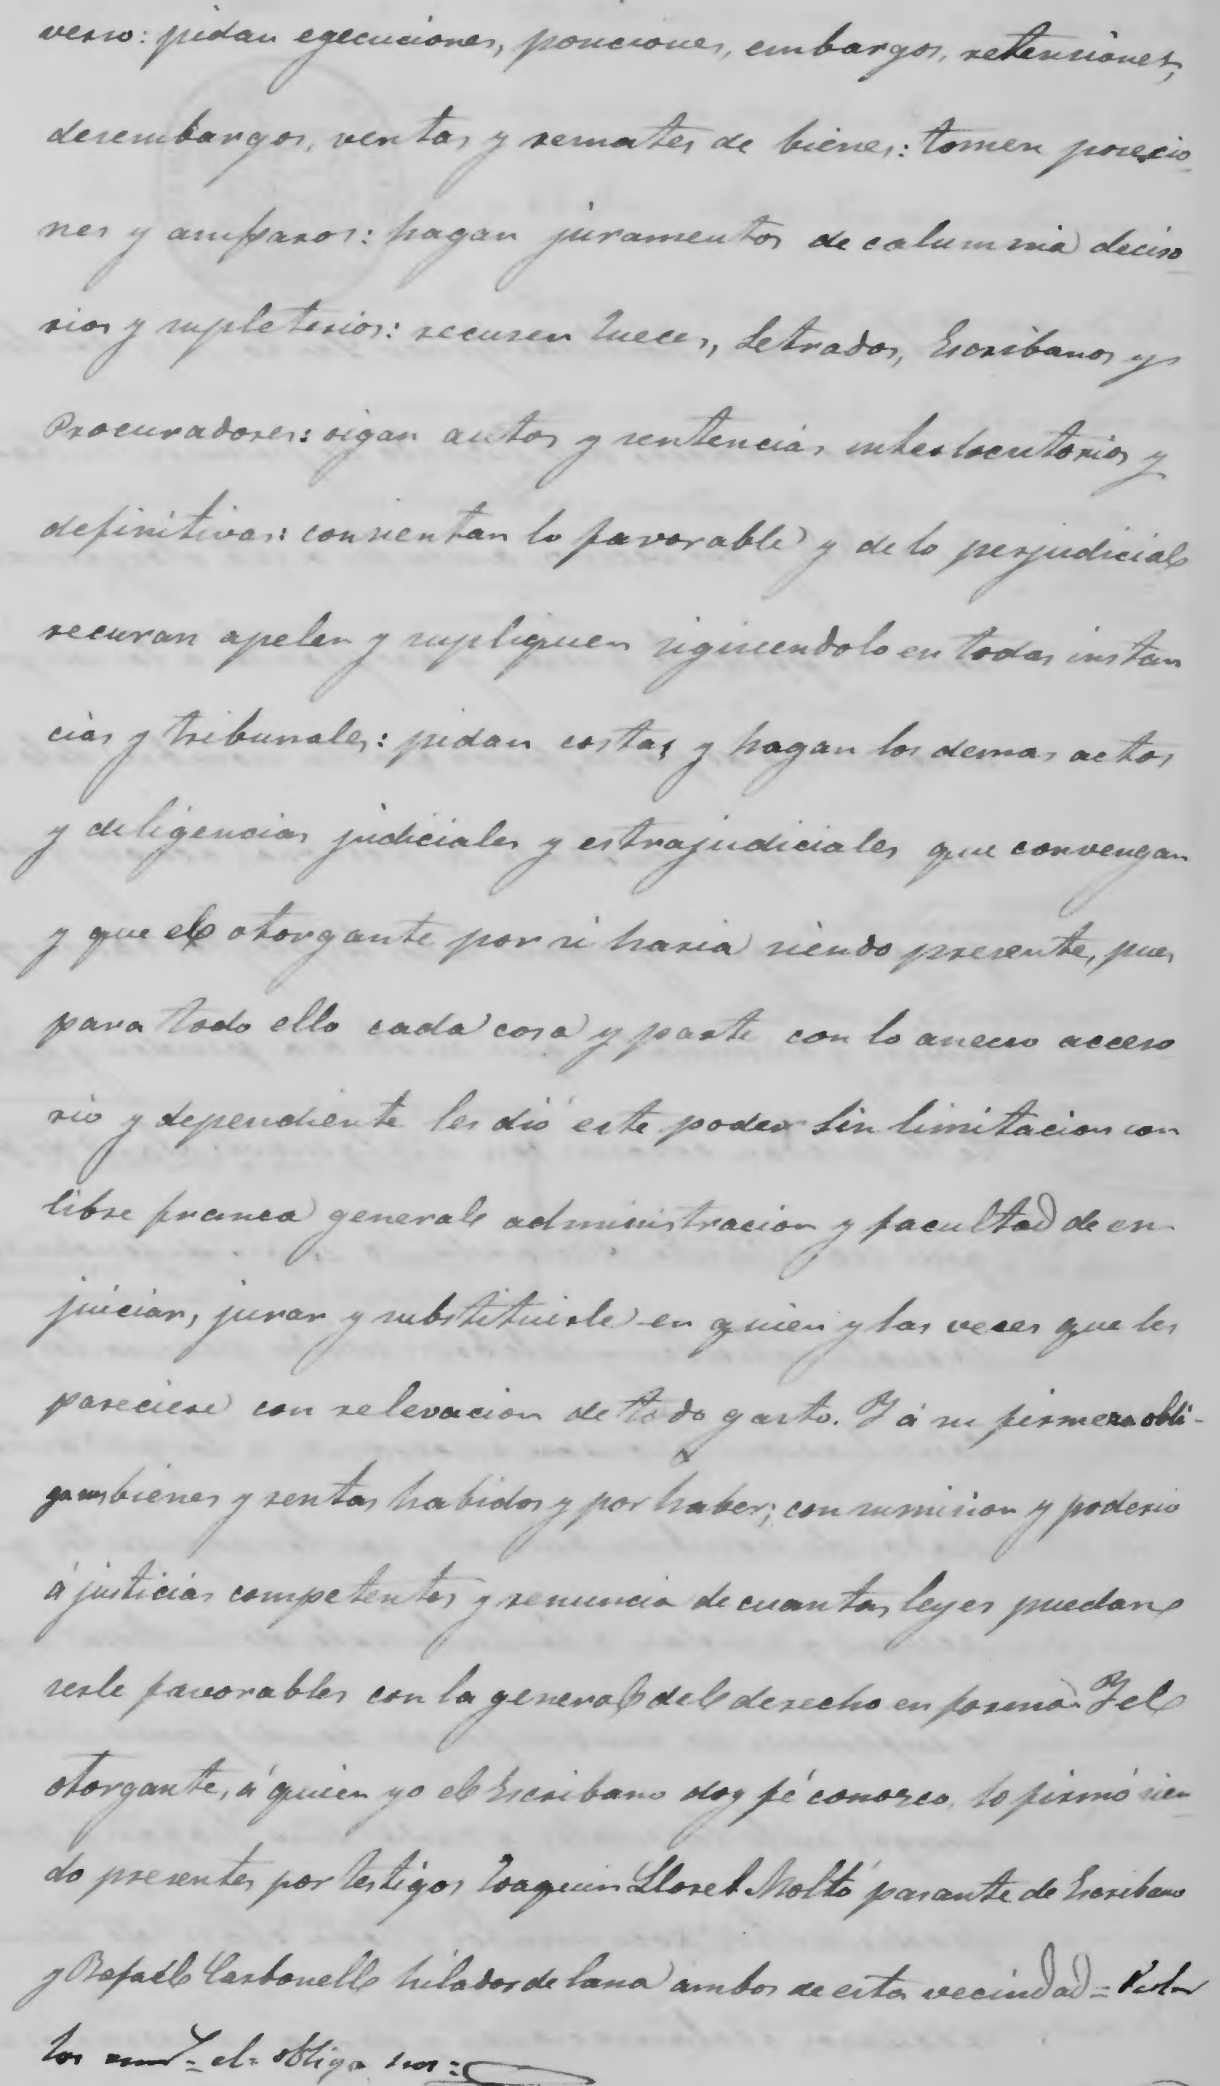 verso: pidan egecuciones, posiciones, embargos, retensiones,
desembargos, ventas y remates de bienes: tomen posecio
nes y amparos: hagan juramentos de calumnia deciso
rios y supletorios: recusen Jueces, Letrados, Escribanos y
Procuradores: oigan autos y sentencias interlocutorios y
definitivas: consientan lo favorable y de lo perjudicial
recuran apelen y supliquen siguiendolo en todas instan
cias y tribunales: pidan costas y hagan los demas actos
y diligencias judiciales y estrajudiciales que convengan
y que el otorgante por si haria siendo presente, pues
para todo ello cada cosa y parte con lo anecso acceso
rio y dependiente les dió este poder sin limitacion con
libre franca general administracion y facultad de en
juiciar, jurar y substituirle en quien y las veces que les
pareciere con relevacion de todo gasto. Y á su firmeza obli-
ga sus bienes y rentas habidos y por haber; con sumision y poderio
á justicias competentes y renuncia de cuantas leyes puedan
serle favorables con la general del derecho en forma. Y el
otorgante, á quien yo el Escribano doy fé conozco, lo firmó sien
do presentes por testigos Joaquin Lloret Moltó pasante de Escribano
y Rafael Carbonell hilador de lana ambos de esta vecindad =
los = el = obliga sus =